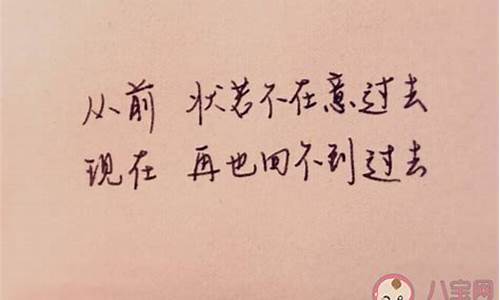 从前 状若不在意过去
现在 再也回不到过去
八宝网